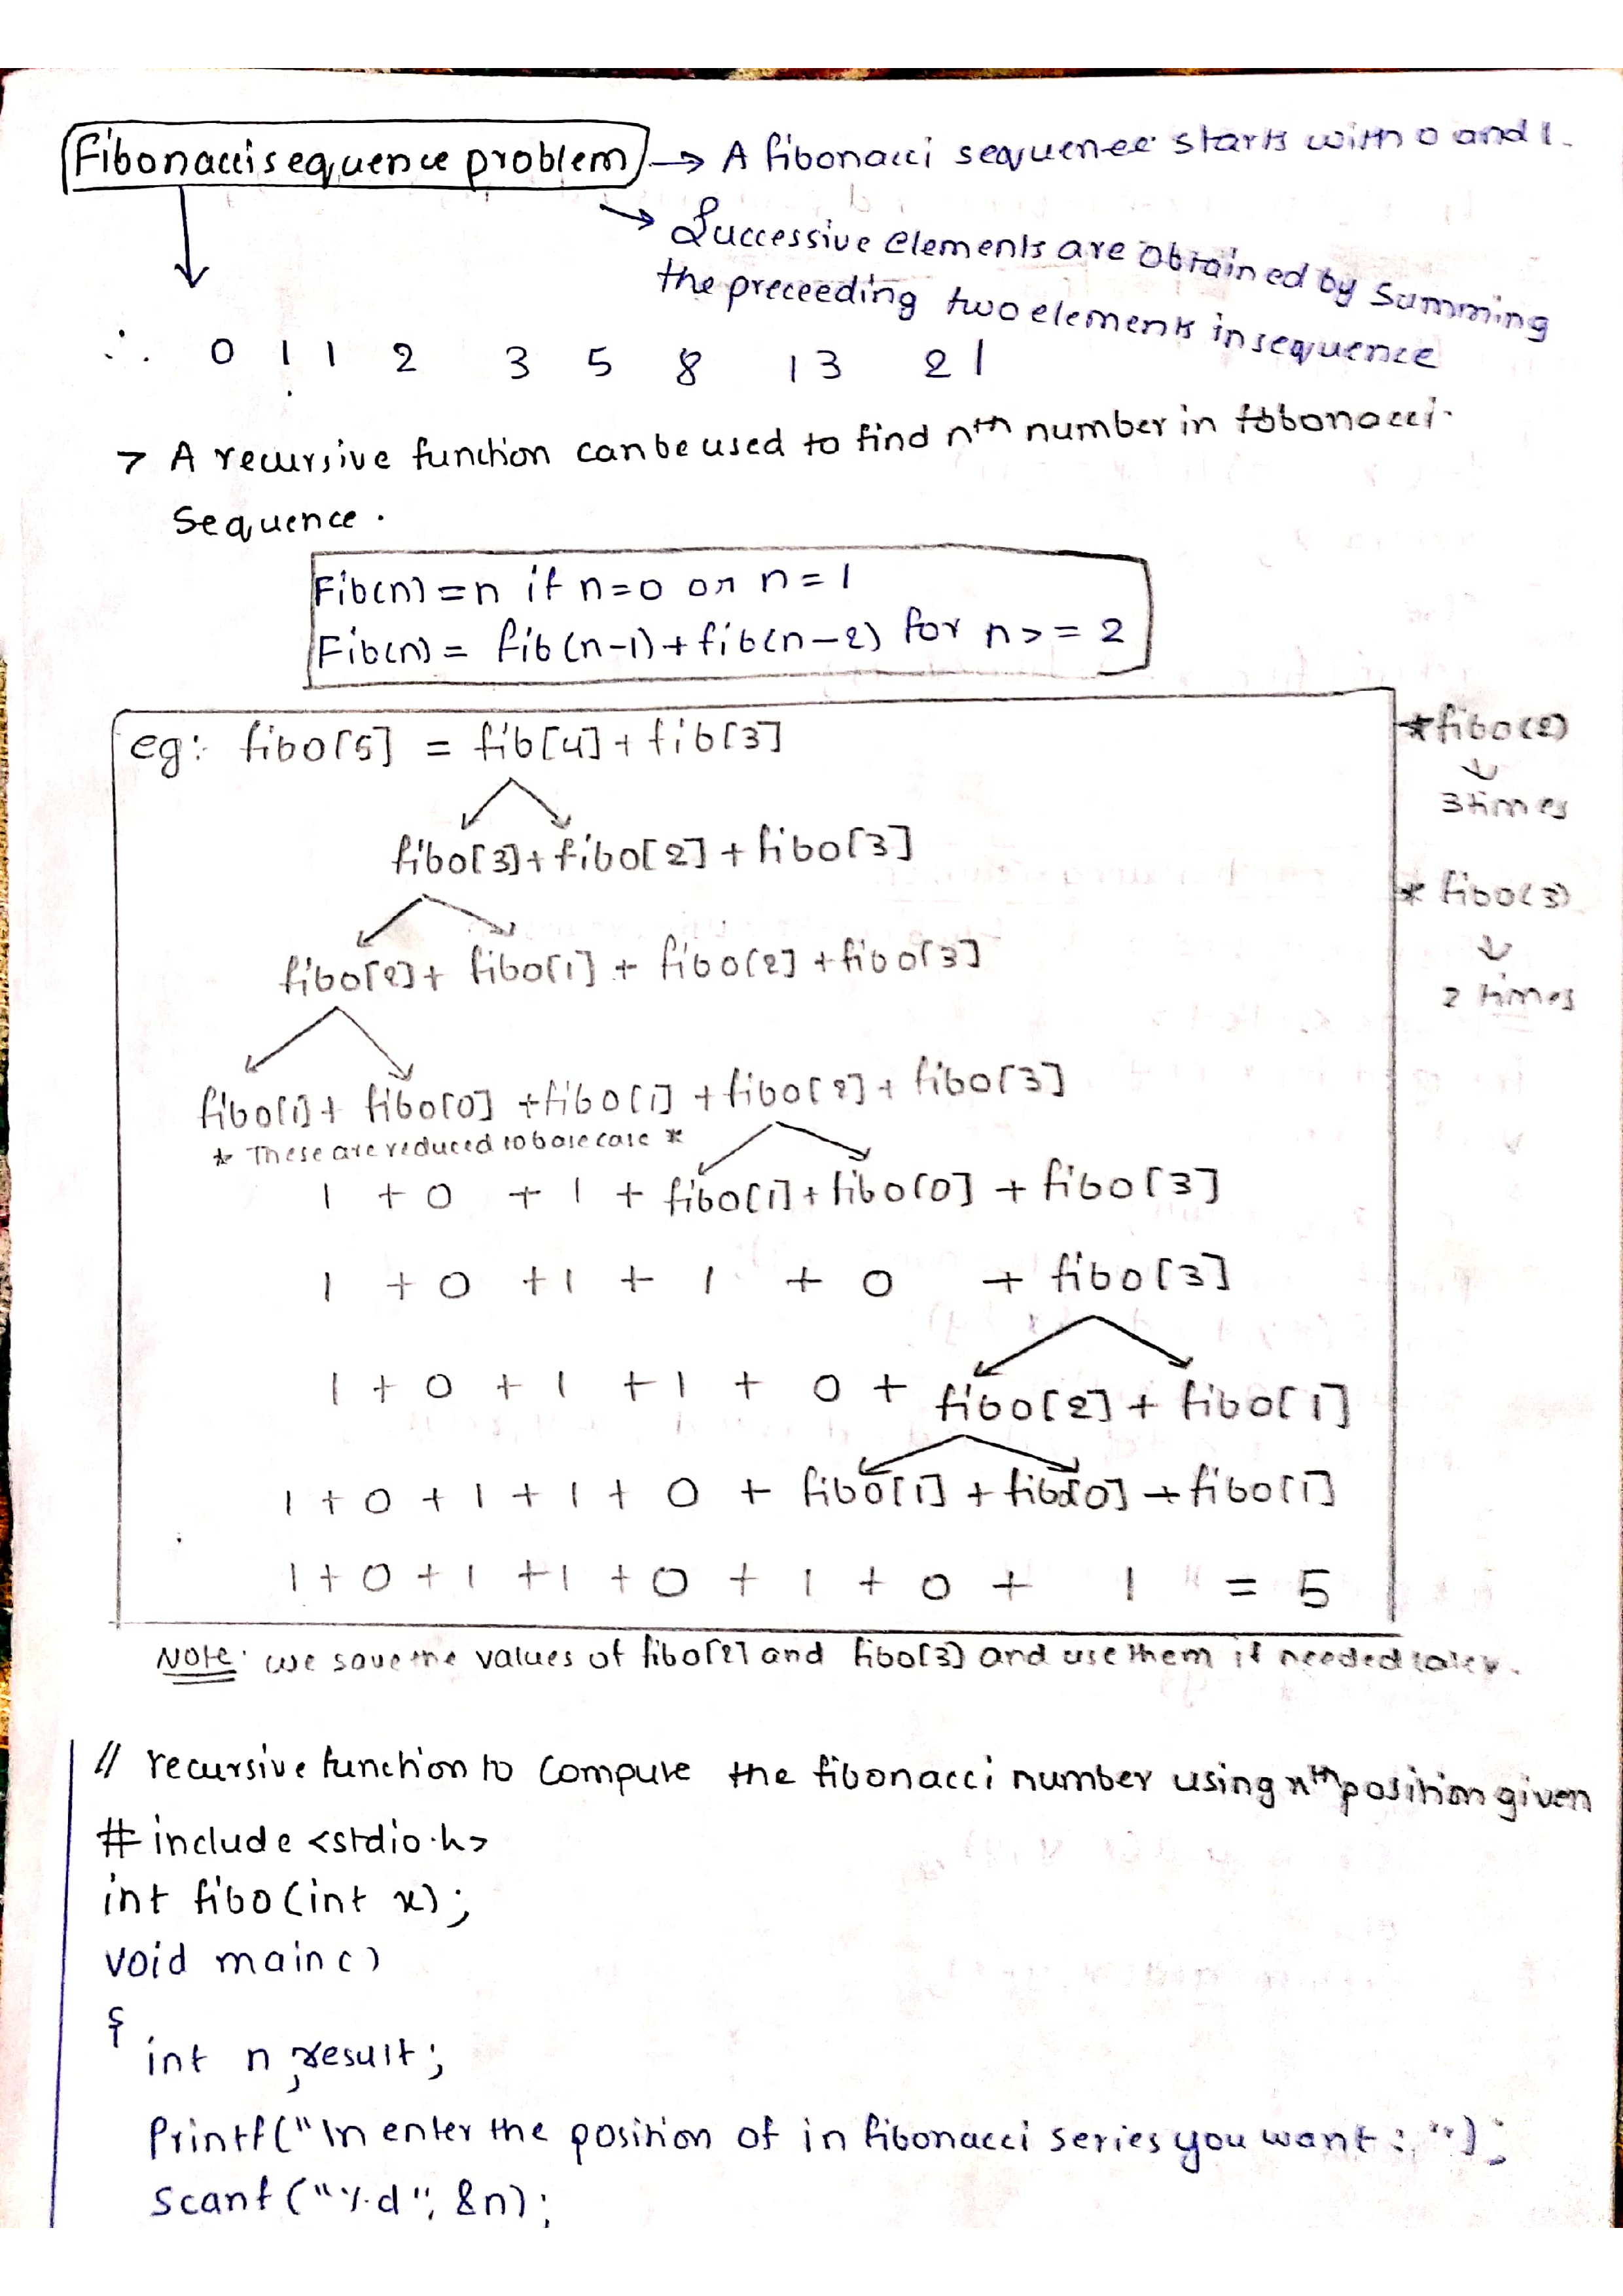 Fibonacci sequence problem → A fibonacci sequence starts with 0 and 1.
→ Successive elements are obtained by summing
the preceeding two elements in sequence
∴ 0 1 1 2 3 5 8 13 21
> A recursive function can be used to find nth number in fobonacci
Sequence.
Fib(n) = n if n=0 or n=1
Fib(n) = fib(n-1)+fib(n-2) for n>=2
eg: fibo[5] = fib[4]+fib[3]
fibo[3]+fibo[2]+fibo[3]
fibo[2]+ fibo[1] + fibo[2]+fibo[3]
fibo[1]+ fibo[0] +fibo[1] +fibo[2]+ fibo[3]
* These are reduced to base case *
1 + 0 + 1 + fibo[1]+fibo[0] + fibo[3]
1 + 0 +1 + 1 + 0 + fibo[3]
1 + 0 + 1 +1 + 0 + fibo[2]+ fibo[1]
1 + 0 + 1 + 1 + 0 + fibo[1] +fibo[0] +fibo[1]
1+0+1 +1 +0 + 1 + 0 + 1 = 5
*fibo(2)
↓
3 times
* fibo(3)
↓
2 times
Note: we save the values of fibo[2] and fibo[3] and use them if needed later.
// recursive function to compute the fibonacci number using nth position given
#include <stdio.h>
int fibo(int x);
void main()
{
int n,result;
Printf("\n enter the position of in fibonacci series you want : ");
Scanf("%d", &n);